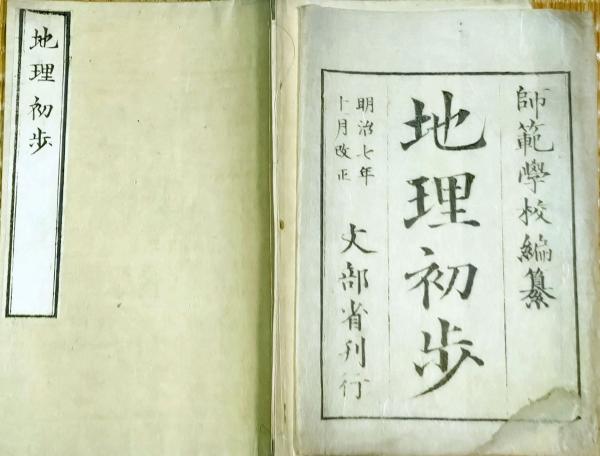 地理初歩
師範學校編纂
地理初歩
明治七年
十月改正
文部省刊行